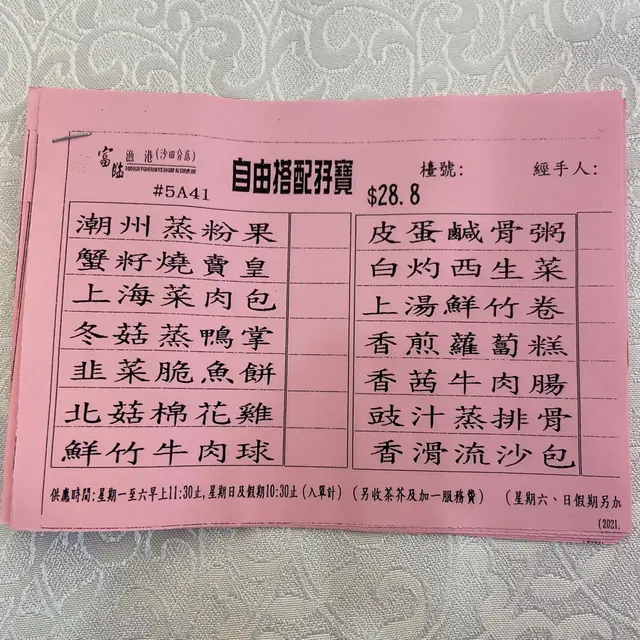 富臨 漁港(沙田分店)
#5A41
自由搭配孖寶
$28.8
檯號:
經手人:
潮州蒸粉果
蟹籽燒賣皇
上海菜肉包
冬菇蒸鴨掌
韭菜脆魚餅
北菇棉花雞
鮮竹牛肉球
皮蛋鹹骨粥
白灼西生菜
上湯鮮竹卷
香煎蘿蔔糕
香茜牛肉腸
豉汁蒸排骨
香滑流沙包
供應時間:星期一至六早上11:30止,星期日及假期10:30止(入單計) (另收茶芥及加一服務費) (星期六、日假期另加
(2021.